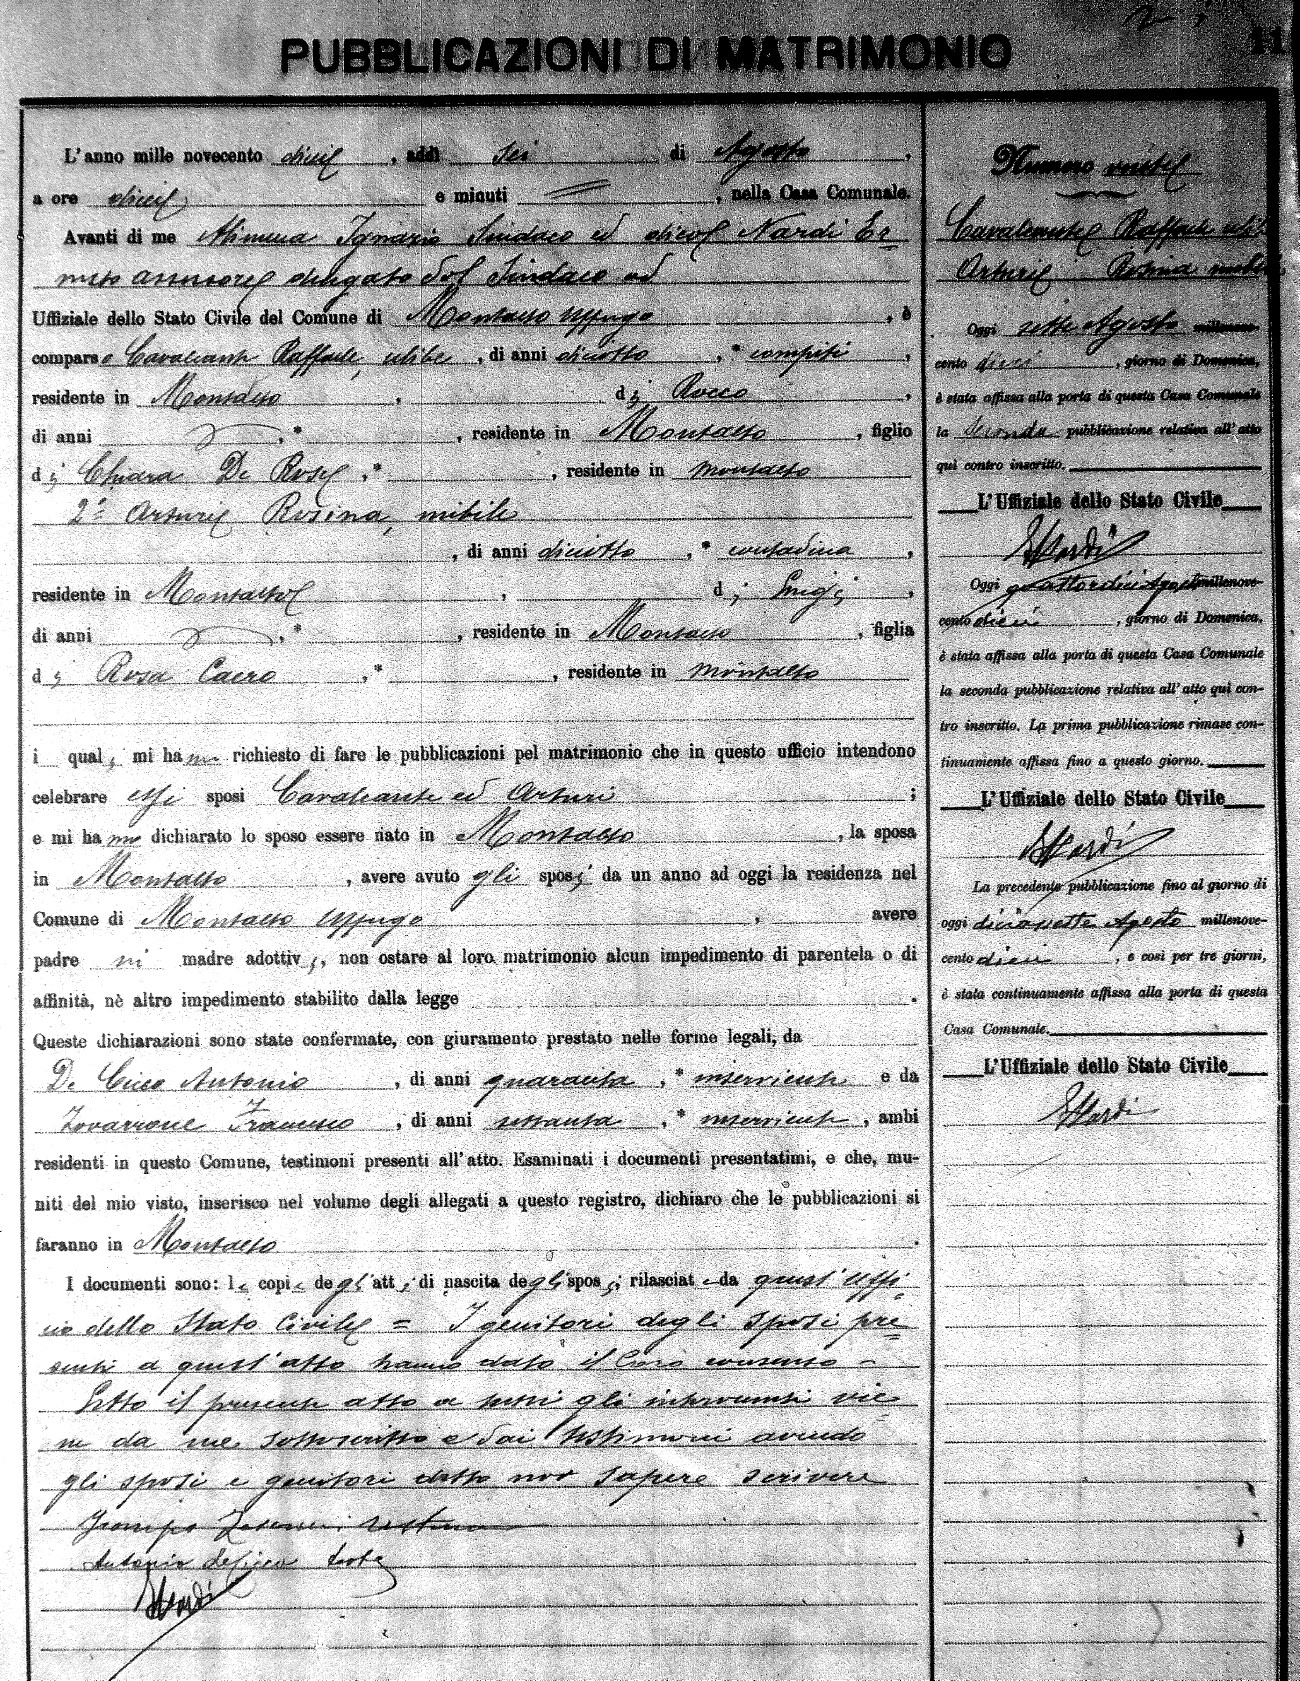 11
PUBBLICAZIONI DI MATRIMONIO
L'anno mille novecento dieci, addì sei di Agosto,
a ore dieci e minuti =, nella Casa Comunale.
Avanti di me Alimena Ignazio Sindaco ed dico Nardi Er=
nesto assessore delegato dal Sindaco ed
Uffiziale dello Stato Civile del Comune di Montalto Uffugo, è
comparso Cavalcante Raffaele, celibe, di anni diciotto, * compiti,
residente in Montalto, di Rocco,
di anni , * , residente in Montalto, figlio
di Chiara De Rose, * , residente in Montalto
2° Arturi Rosina, nubile
, di anni diciotto, * contadina,
residente in Montalto, di Luigi,
di anni , * , residente in Montalto, figlia
di Rosa Caero, * , residente in Montalto
i quali mi hanno richiesto di fare le pubblicazioni pel matrimonio che in questo ufficio intendono
celebrare essi sposi Cavalcante ed Arturi ;
e mi hanno dichiarato lo sposo essere nato in Montalto, la sposa
in Montalto, avere avuto gli sposi da un anno ad oggi la residenza nel
Comune di Montalto Uffugo, avere
padre ni madre adottivi, non ostare al loro matrimonio alcun impedimento di parentela o di
affinità, nè altro impedimento stabilito dalla legge .
Queste dichiarazioni sono state confermate, con giuramento prestato nelle forme legali, da
De Cicco Antonio, di anni quaranta, * inserviente e da
Francesco, di anni sessanta, * inserviente, ambi
residenti in questo Comune, testimoni presenti all'atto. Esaminati i documenti presentatimi, e che, mu-
niti del mio visto, inserisco nel volume degli allegati a questo registro, dichiaro che le pubblicazioni si
faranno in Montalto .
I documenti sono: le copie degli atti di nascita degli sposi, rilasciate da quest'Uffi-
cio dello Stato Civile = I genitori degli sposi pre=
senti a quest'atto hanno dato il loro consenso -
Letto il presente atto a tutti gli intervenuti vie=
ne da me sottoscritto e dai testimoni avendo
gli sposi e genitori detto non sapere scrivere
testimone
Antonio De Cicco teste
E Nardi
Numero
Cavalcante Raffaele celibe
Arturi Rosina nubile
Oggi sette Agosto millenove-
cento dieci, giorno di Domenica,
è stata affissa alla porta di questa Casa Comunale
la seconda pubblicazione relativa all'atto
qui contro inscritto.
L'Uffiziale dello Stato Civile
E Nardi
Oggi quattordici Agosto millenove-
cento dieci, giorno di Domenica,
è stata affissa alla porta di questa Casa Comunale
la seconda pubblicazione relativa all'atto qui con-
tro inscritto. La prima pubblicazione rimase con-
tinuamente affissa fino a questo giorno.
L'Uffiziale dello Stato Civile
E Nardi
La precedente pubblicazione fino al giorno di
oggi diciassette Agosto millenove-
cento dieci, e così per tre giorni,
è stata continuamente affissa alla porta di questa
Casa Comunale.
L'Uffiziale dello Stato Civile
E Nardi